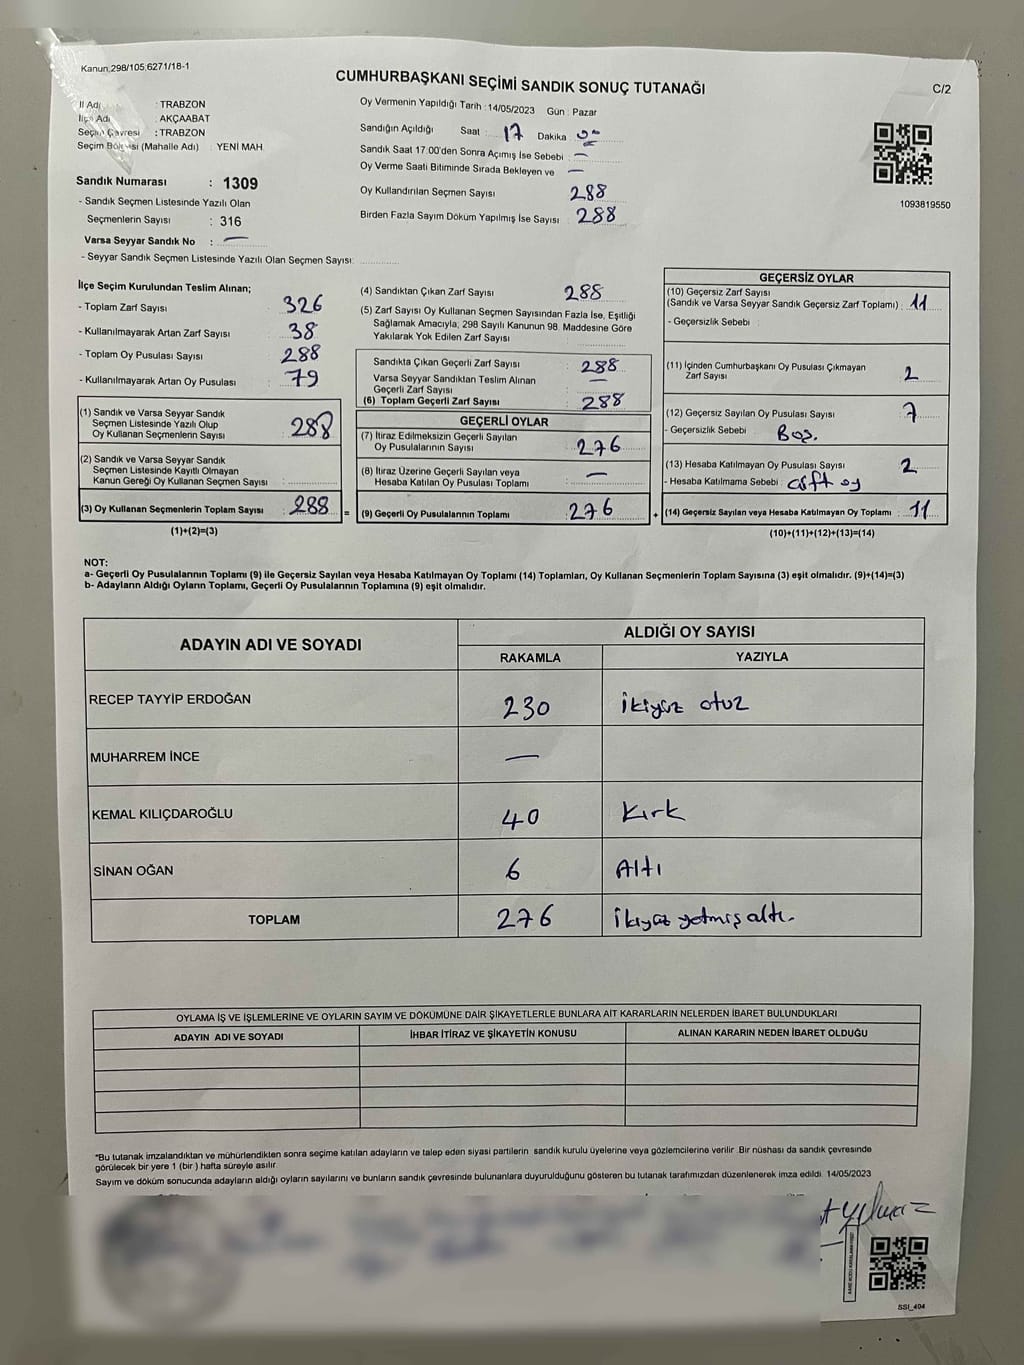 Kanun,298/105,6271/18-1
CUMHURBAŞKANI SEÇİMİ SANDIK SONUÇ TUTANAĞI
C/2
İl Adı : TRABZON
İlçe Adı : AKÇAABAT
Seçim Çevresi : TRABZON
Seçim Bölgesi (Mahalle Adı) : YENİ MAH.
Sandık Numarası : 1309
- Sandık Seçmen Listesinde Yazılı Olan
Seçmenlerin Sayısı : 316
Varsa Seyyar Sandık No : —
- Seyyar Sandık Seçmen Listesinde Yazılı Olan Seçmen Sayısı:
Oy Vermenin Yapıldığı Tarih : 14/05/2023 Gün : Pazar
Sandığın Açıldığı Saat : 17 Dakika : 00
Sandık Saat 17:00'den Sonra Açımış İse Sebebi : —
Oy Verme Saati Bitiminde Sırada Bekleyen ve —
Oy Kullandırılan Seçmen Sayısı 288
Birden Fazla Sayım Döküm Yapılmış İse Sayısı : 288
1093819550
İlçe Seçim Kurulundan Teslim Alınan;
- Toplam Zarf Sayısı : 326
- Kullanılmayarak Artan Zarf Sayısı : 38
- Toplam Oy Pusulası Sayısı : 288
- Kullanılmayarak Artan Oy Pusulası : 79
(1) Sandık ve Varsa Seyyar Sandık
Seçmen Listesinde Yazılı Olup
Oy Kullanan Seçmenlerin Sayısı : 288
(2) Sandık ve Varsa Seyyar Sandık
Seçmen Listesinde Kayıtlı Olmayan
Kanun Gereği Oy Kullanan Seçmen Sayısı :
(3) Oy Kullanan Seçmenlerin Toplam Sayısı : 288 =
(1)+(2)=(3)
(4) Sandıktan Çıkan Zarf Sayısı : 288
(5) Zarf Sayısı Oy Kullanan Seçmen Sayısından Fazla İse, Eşitliği
Sağlamak Amacıyla, 298 Sayılı Kanunun 98. Maddesine Göre
Yakılarak Yok Edilen Zarf Sayısı :
Sandıkta Çıkan Geçerli Zarf Sayısı : 288
Varsa Seyyar Sandıktan Teslim Alınan
Geçerli Zarf Sayısı : —
(6) Toplam Geçerli Zarf Sayısı : 288
GEÇERLİ OYLAR
(7) İtiraz Edilmeksizin Geçerli Sayılan
Oy Pusulalarının Sayısı : 276
(8) İtiraz Üzerine Geçerli Sayılan veya
Hesaba Katılan Oy Pusulası Toplamı : —
(9) Geçerli Oy Pusulalarının Toplamı : 276 +
GEÇERSİZ OYLAR
(10) Geçersiz Zarf Sayısı
(Sandık ve Varsa Seyyar Sandık Geçersiz Zarf Toplamı) : 11
- Geçersizlik Sebebi :
(11) İçinden Cumhurbaşkanı Oy Pusulası Çıkmayan
Zarf Sayısı : 2
(12) Geçersiz Sayılan Oy Pusulası Sayısı : 7
- Geçersizlik Sebebi : Boş.
(13) Hesaba Katılmayan Oy Pusulası Sayısı : 2
- Hesaba Katılmama Sebebi : çift oy
(14) Geçersiz Sayılan veya Hesaba Katılmayan Oy Toplamı : 11
(10)+(11)+(12)+(13)=(14)
NOT:
a- Geçerli Oy Pusulalarının Toplamı (9) ile Geçersiz Sayılan veya Hesaba Katılmayan Oy Toplamı (14) Toplamları, Oy Kullanan Seçmenlerin Toplam Sayısına (3) eşit olmalıdır. (9)+(14)=(3)
b- Adayların Aldığı Oyların Toplamı, Geçerli Oy Pusulalarının Toplamına (9) eşit olmalıdır.
ADAYIN ADI VE SOYADI ALDIĞI OY SAYISI
RAKAMLA YAZIYLA
RECEP TAYYİP ERDOĞAN 230 İkiyüz otuz
MUHARREM İNCE —
KEMAL KILIÇDAROĞLU 40 Kırk
SİNAN OĞAN 6 Altı
TOPLAM 276 İkiyüz yetmiş altı.
OYLAMA İŞ VE İŞLEMLERİNE VE OYLARIN SAYIM VE DÖKÜMÜNE DAİR ŞİKAYETLERLE BUNLARA AİT KARARLARIN NELERDEN İBARET BULUNDUKLARI
ADAYIN ADI VE SOYADI İHBAR İTİRAZ VE ŞİKAYETİN KONUSU ALINAN KARARIN NEDEN İBARET OLDUĞU
*Bu tutanak imzalandıktan ve mühürlendikten sonra seçime katılan adayların ve talep eden siyasi partilerin sandık kurulu üyelerine veya gözlemcilerine verilir. Bir nüshası da sandık çevresinde
görülecek bir yere 1 (bir ) hafta süreyle asılır.
Sayım ve döküm sonucunda adayların aldığı oyların sayılarını ve bunların sandık çevresinde bulunanlara duyurulduğunu gösteren bu tutanak tarafımızdan düzenlenerek imza edildi. 14/05/2023
Yılmaz
SSI_404